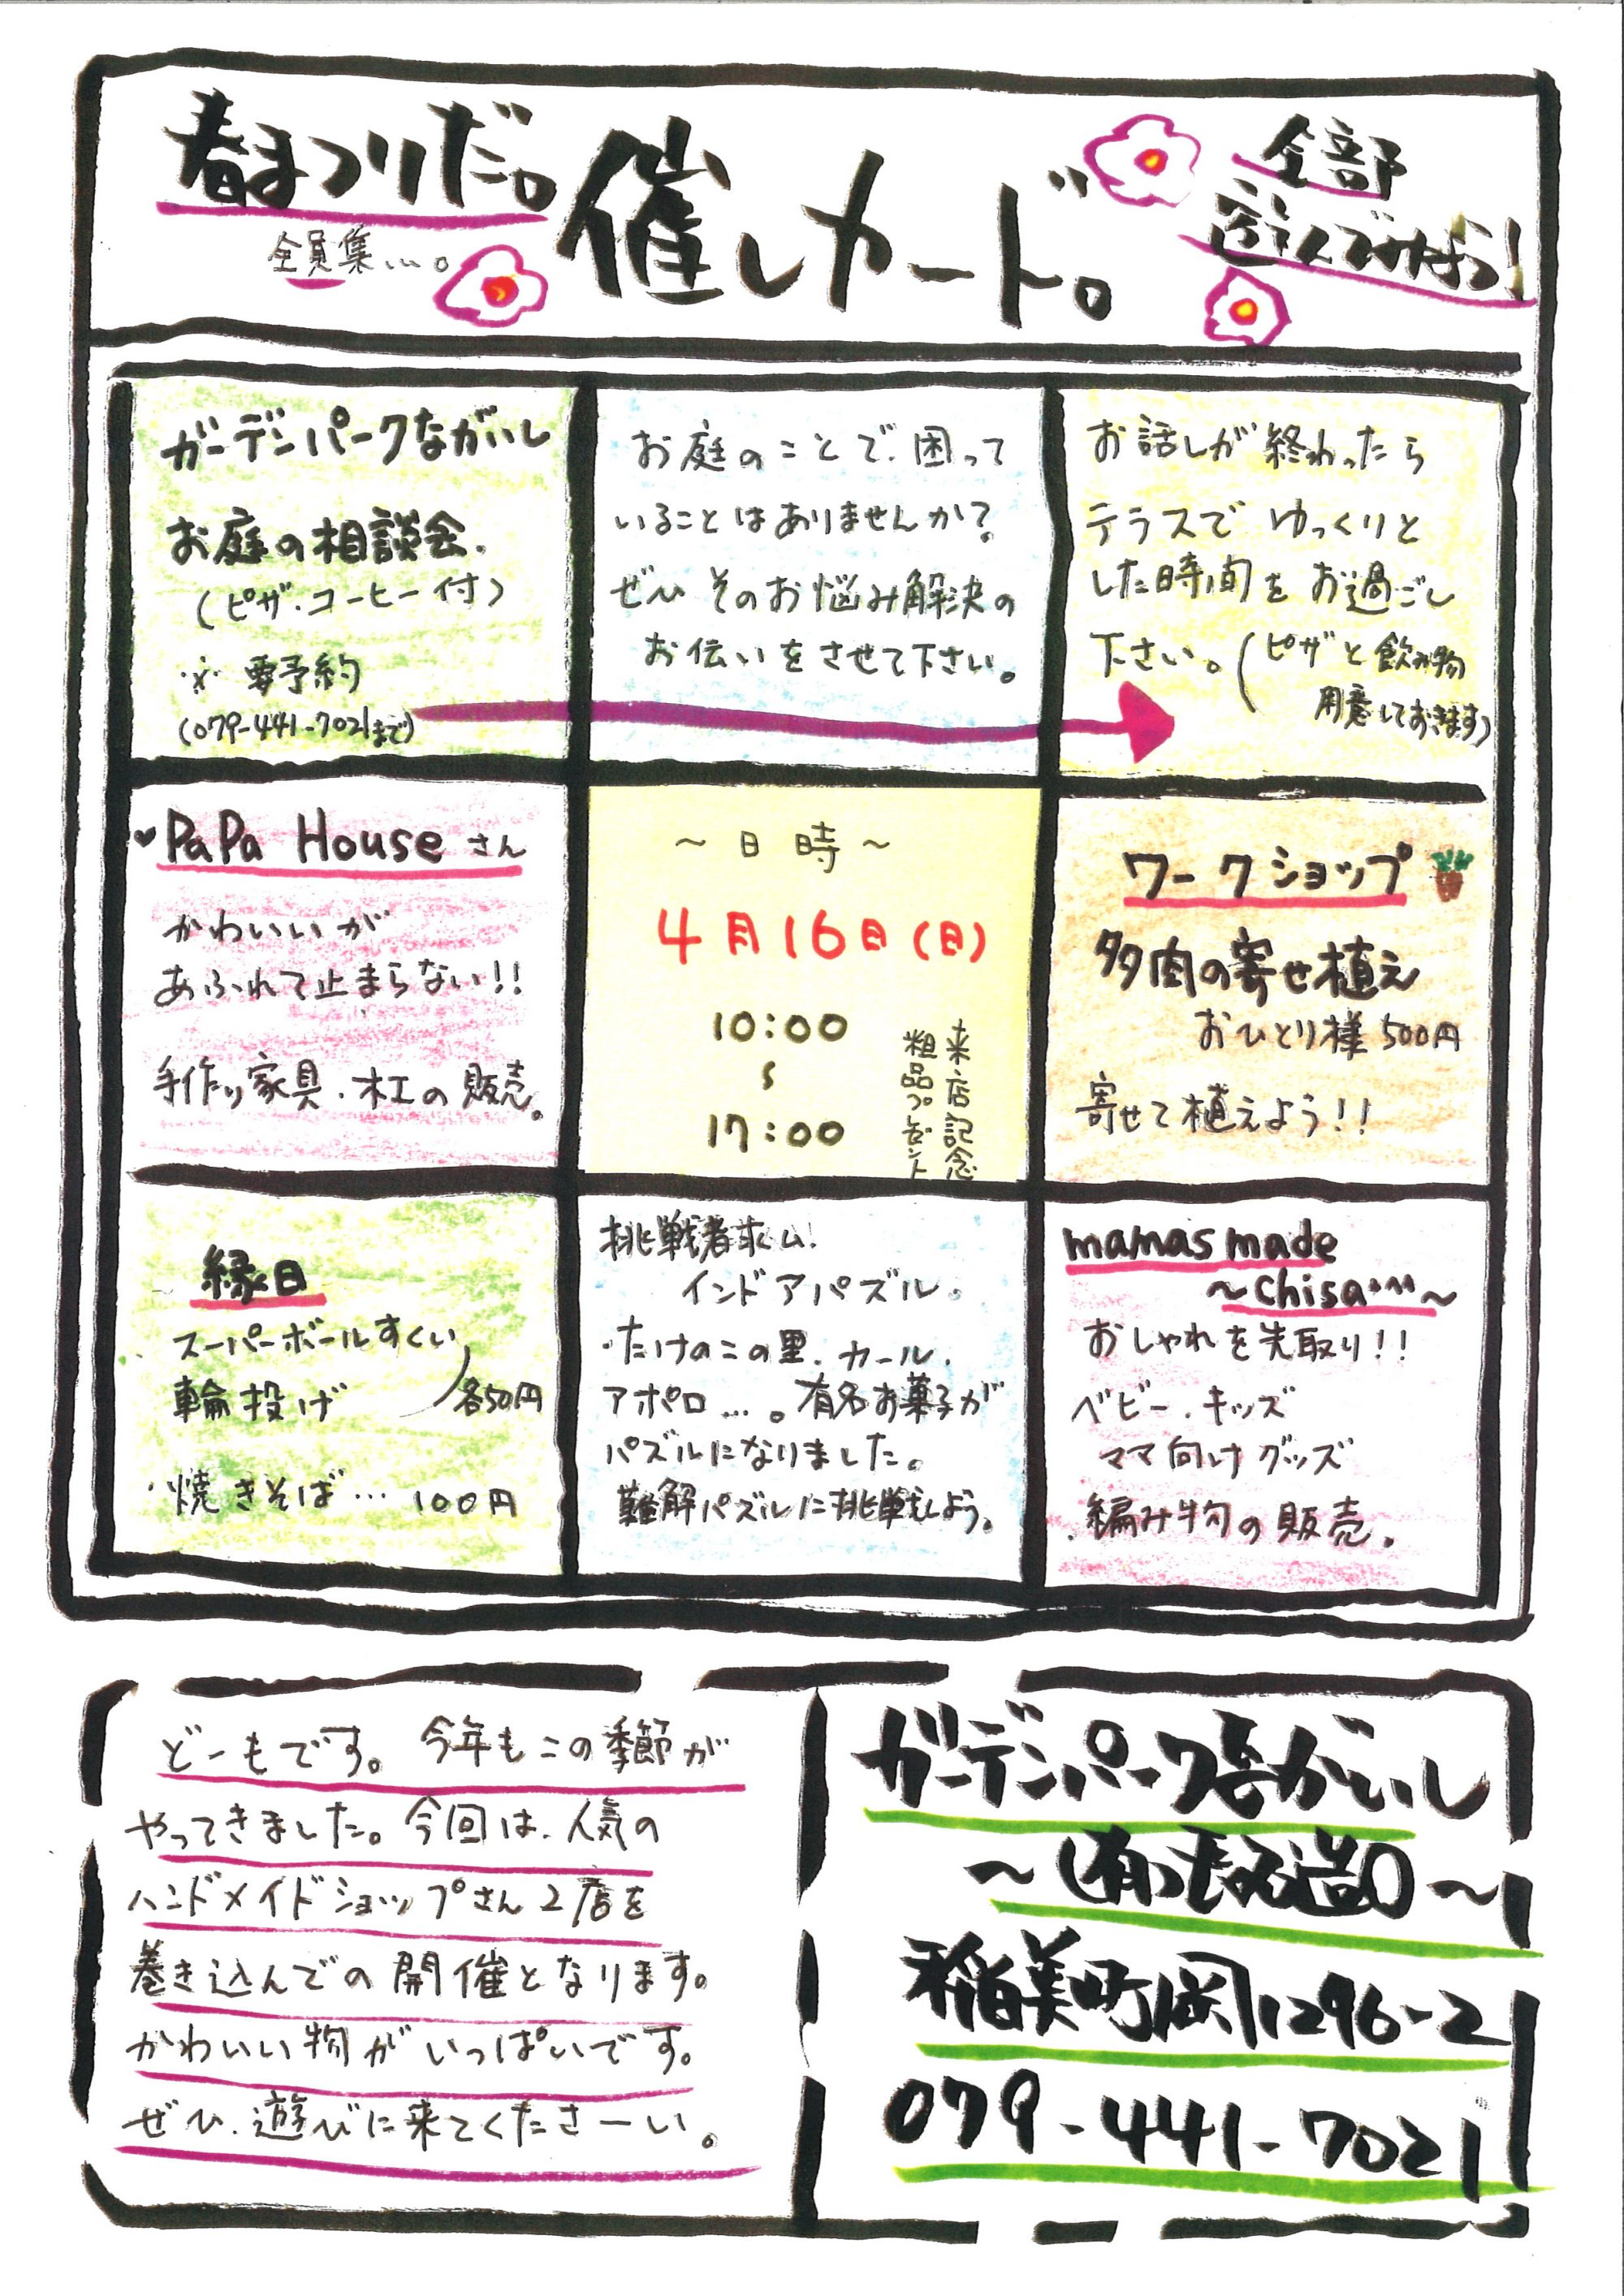 春まつりだ。
全員集…。
催しカード。
全部
遊んでみよう!
ガーデンパークながいし
お庭の相談会.
(ピザ・コーヒー付)
※要予約
(079-441-7021まで)
お庭のことで、困って
いることはありませんか?
ぜひそのお悩み解決の
お伝いをさせて下さい。
お話しが終わったら
テラスでゆっくりと
した時間をお過ごし
下さい。(ピザと飲み物
用意しておきます)
PaPa Houseさん
かわいいが
あふれて止まらない!!
手作り家具・木工の販売。
~日時~
4月16日(日)
10:00
~
17:00
来店記念
粗品プレゼント
ワークショップ
多肉の寄せ植え
おひとり様500円
寄せて植えよう!!
縁日
スーパーボールすくい
輪投げ
各50円
・焼きそば…100円
挑戦者求ム!
インドアパズル。
・たけのこの里.カール.
アポロ…。有名お菓子が
パズルになりました。
難解パズルに挑戦しよう。
mamas made
~chisa・^^~
おしゃれを先取り!!
ベビー.キッズ
ママ向けグッズ
.編み物の販売。
どーもです。今年もこの季節が
やってきました。今回は、人気の
ハンドメイドショップさん2店を
巻き込んでの開催となります。
かわいい物がいっぱいです。
ぜひ、遊びに来てくださーい。
ガーデンパークながいし
稲美町岡1296-2
079-441-7021